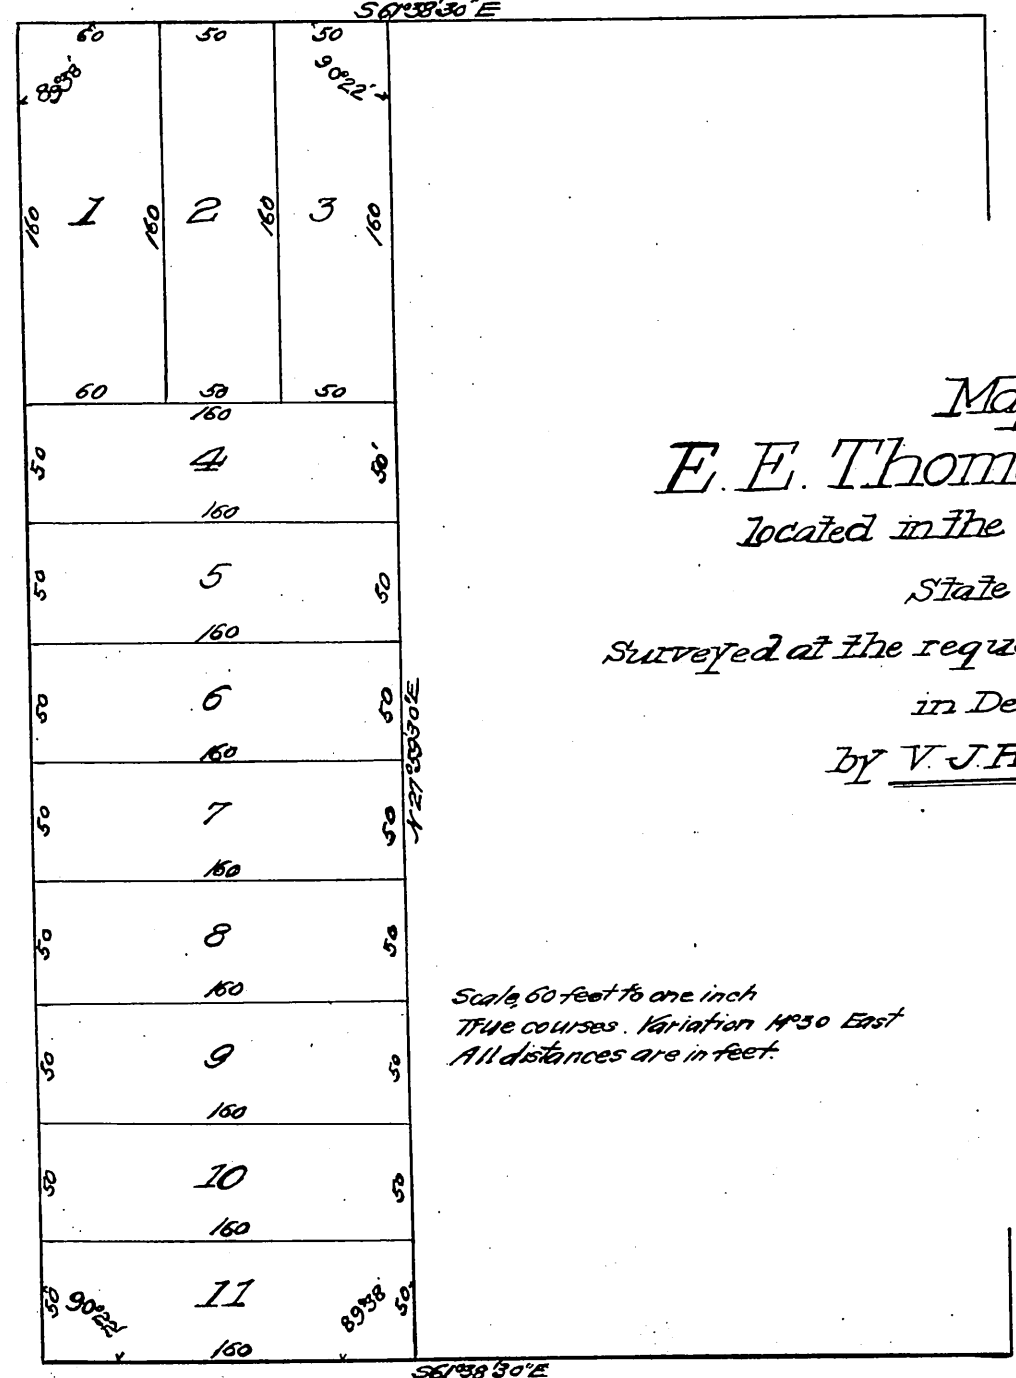 S61°38'30"E
60 50 50
89°38' 90°22'
160 1 160 2 160 3 160
60 50 50
160
50 4 50'
160
50 5 50
160
50 6 50
160
N27°59'30"E
50 7 50
160
50 8 50
160
50 9 50
160
50 10 50
160
50 90°22' 11 89°38' 50
160
S61°38'30"E
E. E. Thom
located in the
State
Surveyed at the requ
in De
by V. J.
Scale, 60 feet to one inch
True courses. Variation 14°30 East
All distances are in feet.